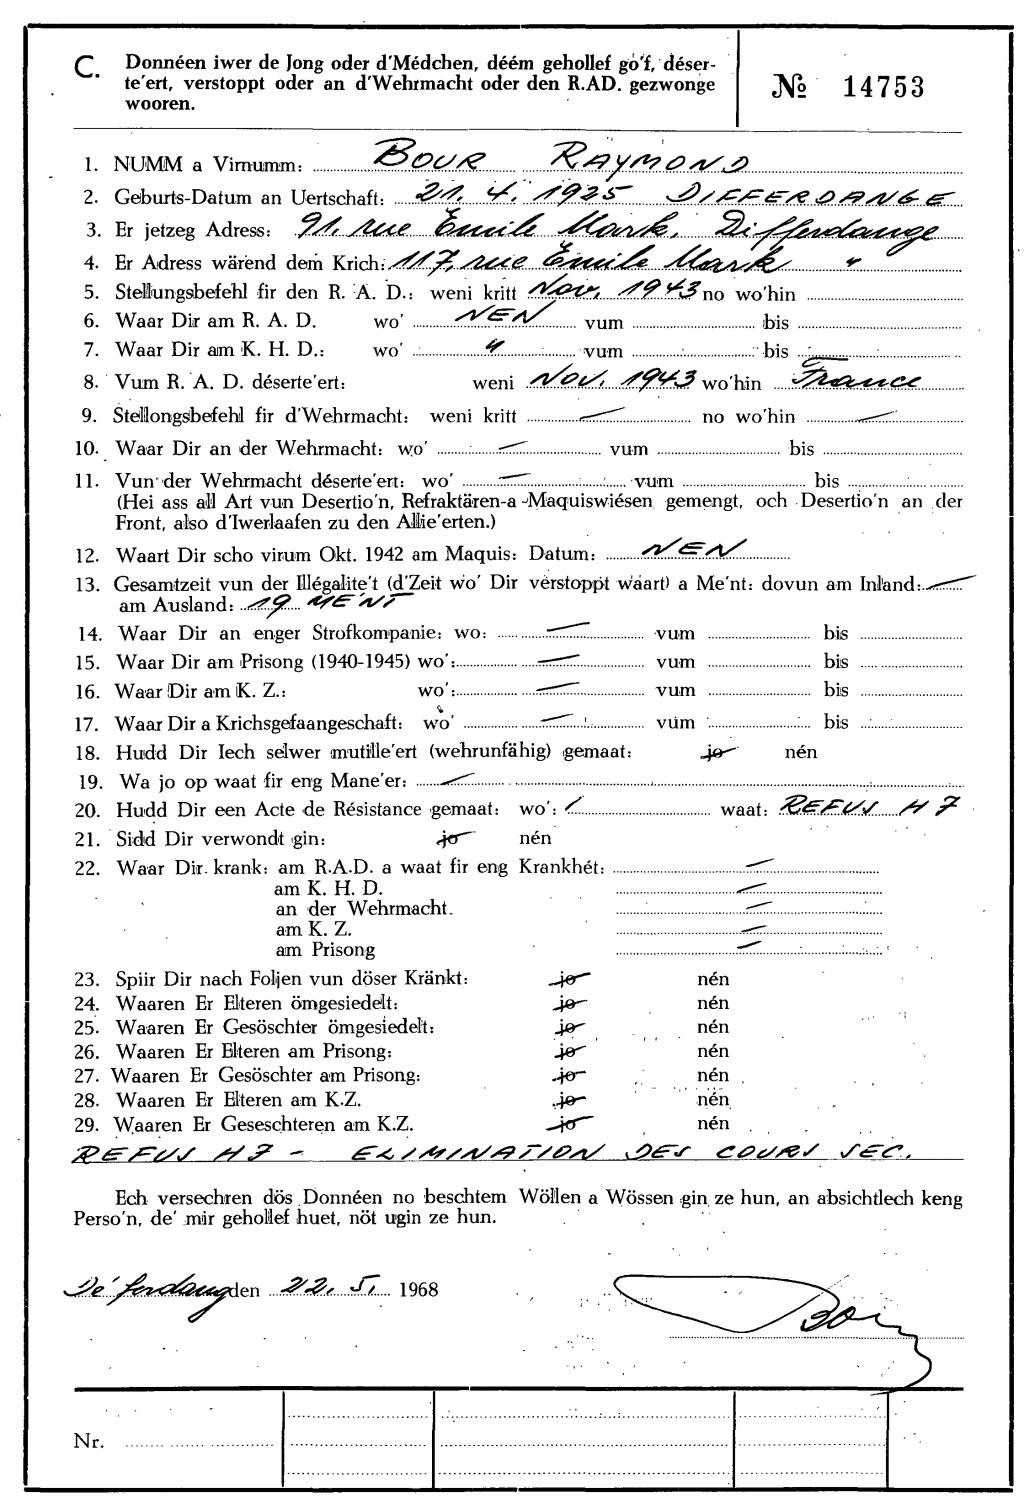 C. Donnéen iwer de Jong oder d'Médchen, déém gehollef go'f, déser-
te'ert, verstoppt oder an d'Wehrmacht oder den R.AD. gezwonge
wooren.
№ 14753
1. NUMM a Virnumm: BOUR RAYMOND
2. Geburts-Datum an Uertschaft: 21. 4. 1925 DIFFERDANGE
3. Er jetzeg Adress: 91. rue Emile Mark. Differdange
4. Er Adress wärend dem Krich: 117, rue Emile Mark "
5. Stellungsbefehl fir den R. A. D.: weni kritt Nov. 1943 no wo'hin
6. Waar Dir am R. A. D. wo' NEN vum bis
7. Waar Dir am K. H. D.: wo' " vum bis
8. Vum R. A. D. déserte'ert: weni Nov. 1943 wo'hin France
9. Stellongsbefehl fir d'Wehrmacht: weni kritt — no wo'hin —
10. Waar Dir an der Wehrmacht: wo' — vum bis
11. Vun der Wehrmacht déserte'ert: wo' — vum bis
(Hei ass all Art vun Desertio'n, Refraktären-a -Maquiswiésen gemengt, och Desertio'n an der
Front, also d'Iwerlaafen zu den Allie'erten.)
12. Waart Dir scho virum Okt. 1942 am Maquis: Datum: NEN
13. Gesamtzeit vun der Illégalite't (d'Zeit wo' Dir verstoppt waart) a Me'nt: dovun am Inland: —
am Ausland: 19 ME'NT
14. Waar Dir an enger Strofkompanie: wo: — vum bis
15. Waar Dir am Prisong (1940-1945) wo': — vum bis
16. Waar Dir am K. Z.: wo': — vum bis
17. Waar Dir a Krichsgefaangeschaft: wo' — vum bis
18. Hudd Dir Iech selwer mutille'ert (wehrunfähig) gemaat: jo nén
19. Wa jo op waat fir eng Mane'er: —
20. Hudd Dir een Acte de Résistance gemaat: wo': / waat: REFUS H J
21. Sidd Dir verwondt gin: jo nén
22. Waar Dir krank: am R.A.D. a waat fir eng Krankhét: —
am K. H. D. —
an der Wehrmacht. —
am K. Z. —
am Prisong —
23. Spiir Dir nach Foljen vun döser Kränkt: jo nén
24. Waaren Er Elteren ömgesiedelt: jo nén
25. Waaren Er Gesöschter ömgesiedelt: jo nén
26. Waaren Er Elteren am Prisong: jo nén
27. Waaren Er Gesöschter am Prisong: jo nén
28. Waaren Er Elteren am K.Z. jo nén
29. Waaren Er Geseschteren am K.Z. jo nén
REFUS HJ - ELIMINATION DES COURS SEC.
Ech versechren dös Donnéen no beschtem Wöllen a Wössen gin ze hun, an absichtlech keng
Perso'n, de' mir gehollef huet, nöt ugin ze hun.
Dé'ferdang den 22. 5. 1968
Nr.